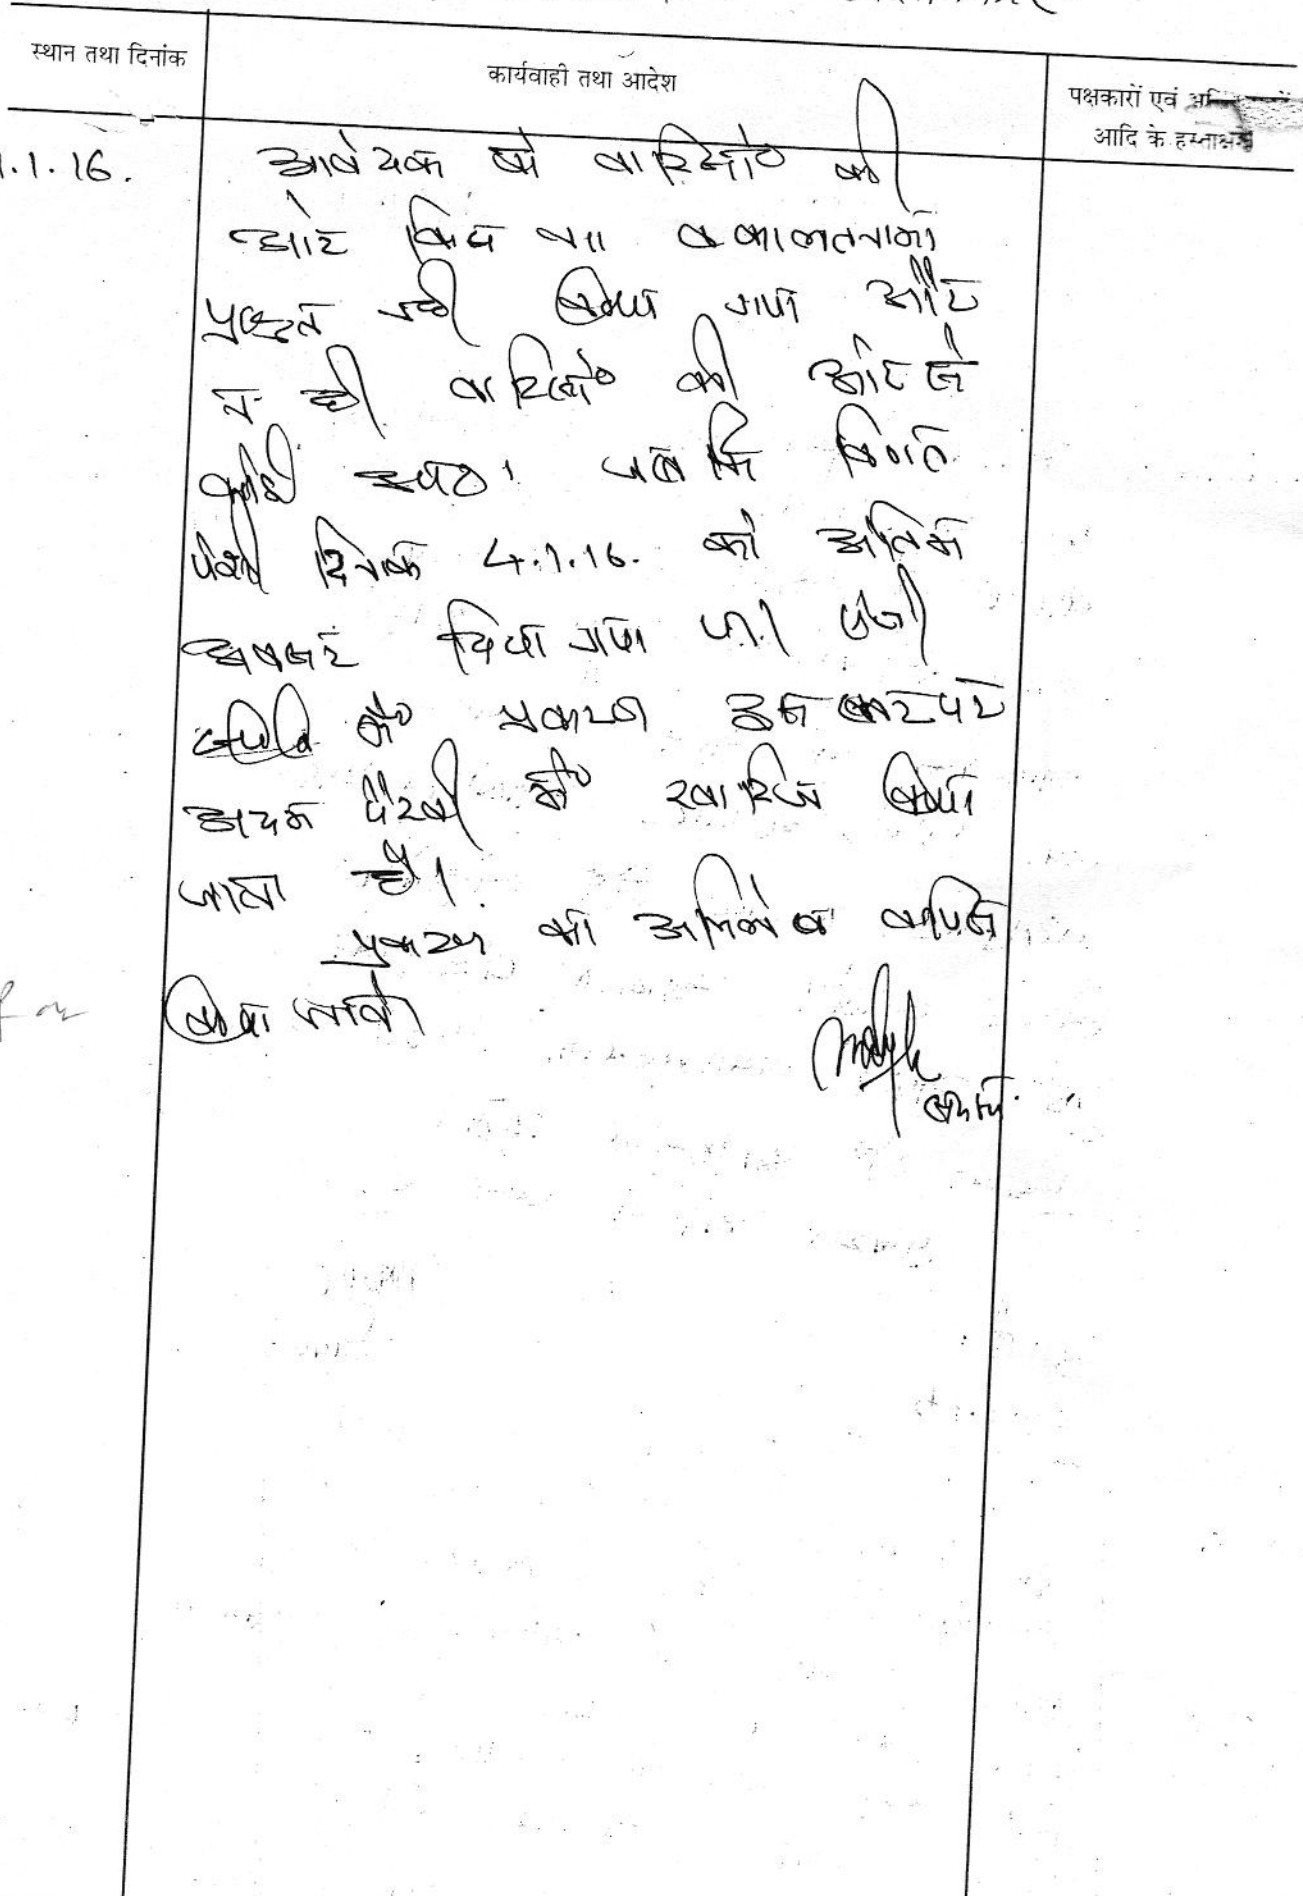 स्थान तथा दिनांक
कार्यवाही तथा आदेश
पक्षकारों एवं
आदि के हस्ताक्षर
1.1.16.
आवेदक के वारिसों की
ओर किसी का वकालतनामा
प्रस्तुत नही किया गया और
न ही वारिसों की ओर से
कोई जबकि विगत
पेशी दिनांक 4.1.16. को अंतिम
अवसर दिया गया था। ऐसी
स्थिति में प्रकरण इस स्तर पर
अदम पैरवी में खारिज किया
जाता है।
प्रकरण का अभिलेख वापिस
किया जावे।